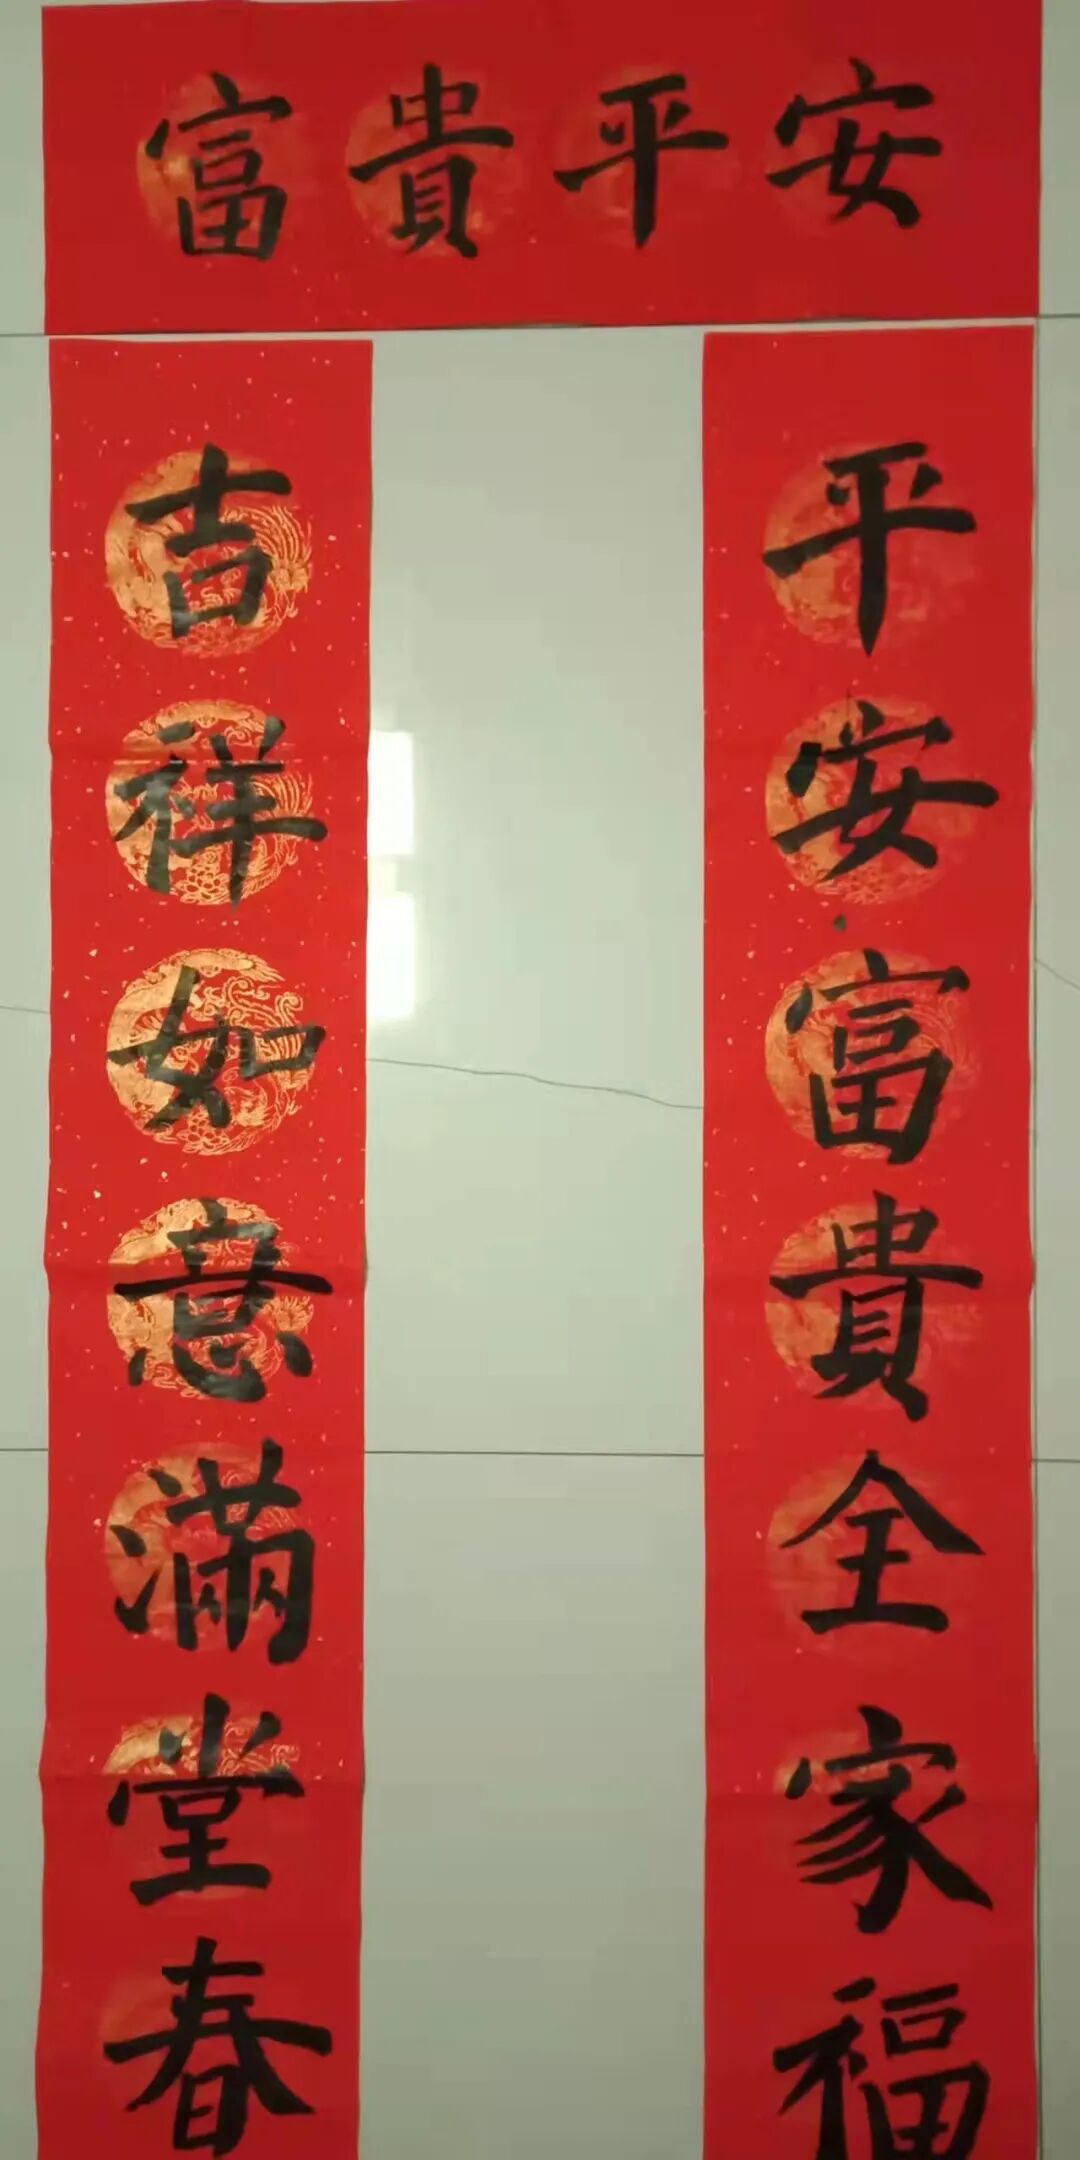 富貴平安
吉祥如意滿堂春
平安富貴全家福